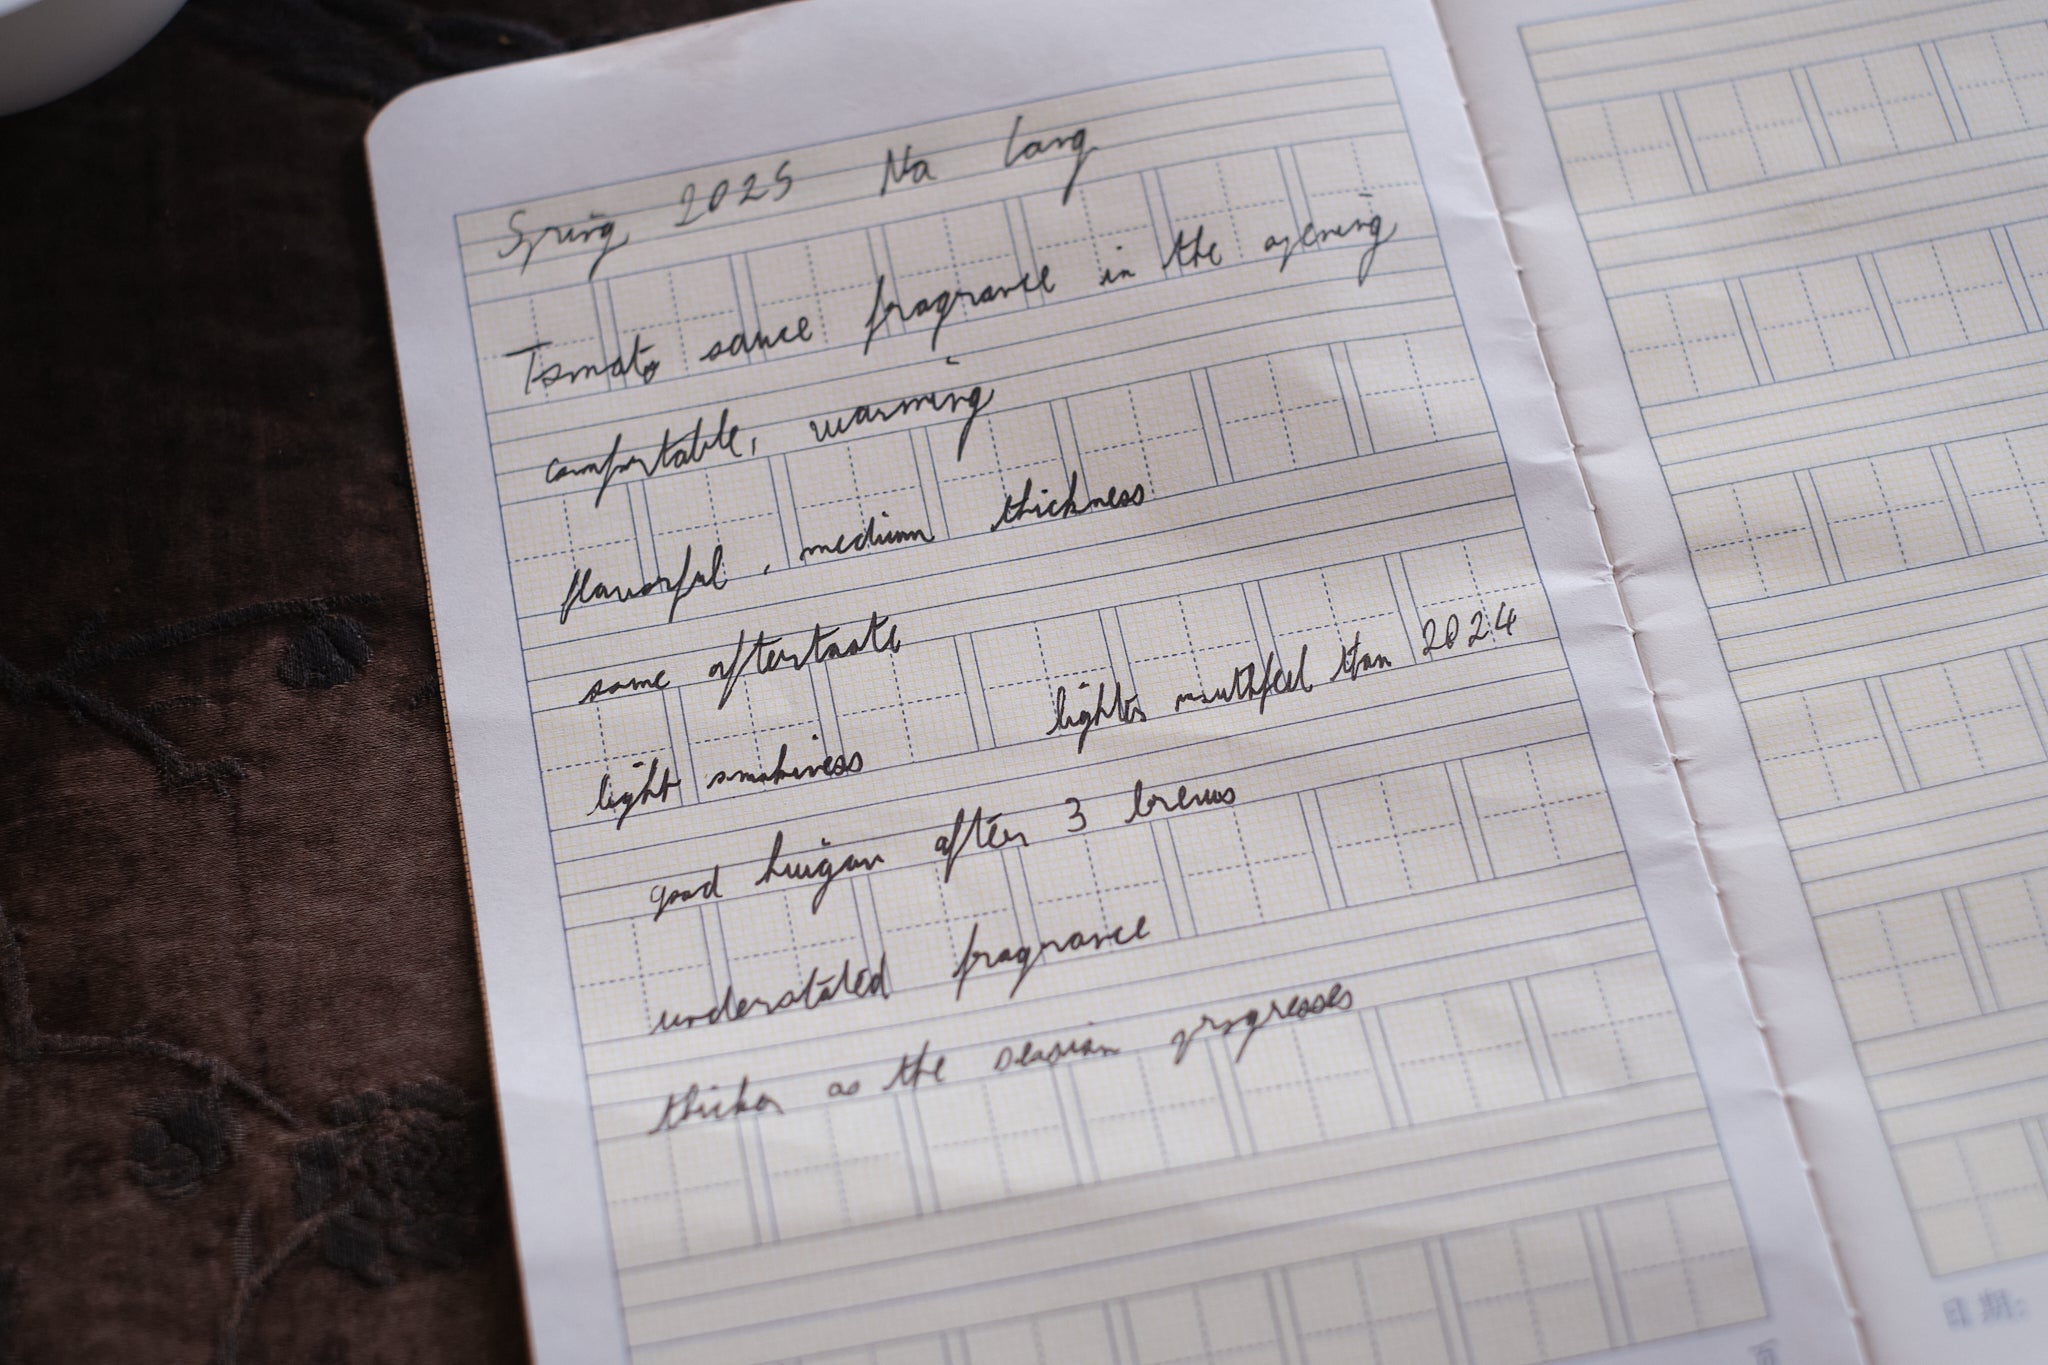 Spring 2025 Na Lang
Tomato sauce fragrance in the opening
comfortable, warming
flavorful, medium thickness
some aftertaste
light smokiness lighter mouthfeel than 2024
good huigan after 3 brews
understated fragrance
thicker as the session progresses